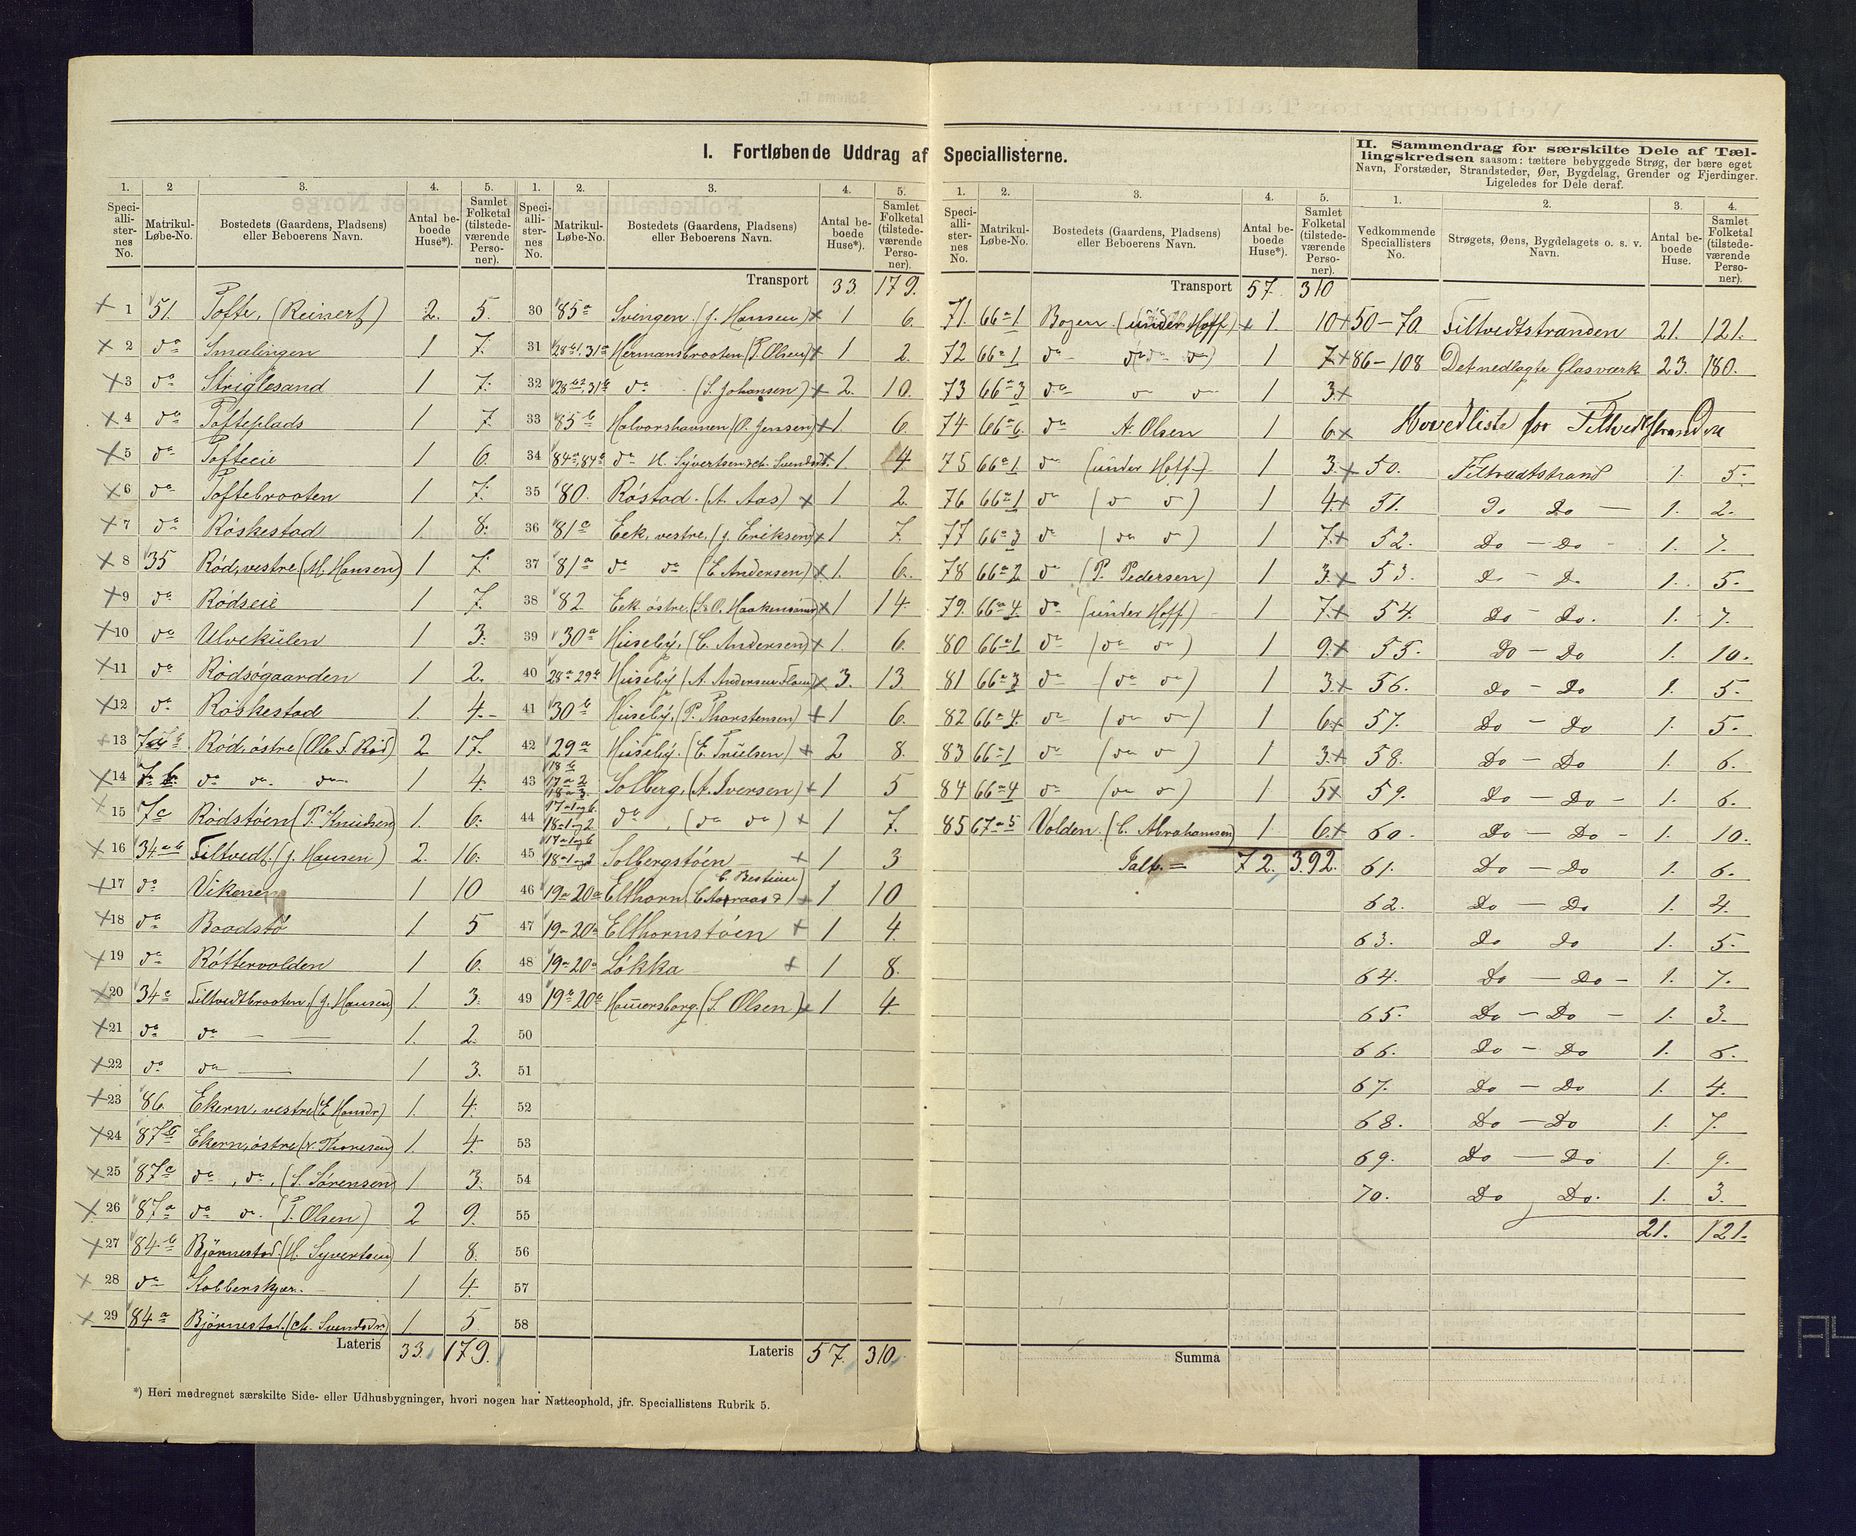 I. Fortløbende Uddrag af Speciallisterne.
II. Sammendrag for særskilte Dele af Tællingskredsen saasom: tættere bebyggede Strøg, der bære eget Navn, Forstæder, Strandsteder, Øer, Bygdelag, Grender og Fjerdinger. Ligeledes for Dele deraf.
1. 2 3. 4. 5.
Speciallisternes No. Matrikul-Løbe-No. Bostedets (Gaardens, Pladsens) eller Beboerens Navn. Antal beboede Huse*). Samlet Folketal (tilstedeværende Personer).
1 51. Tofte, (Reinert) 2. 5.
2 do Smalingen 1 7.
3 do Striglesand 1 7.
4 do Tofteplads 1 7.
5 do Tofteeie 1 6.
6 do Toftebraaten 1 7.
7 do Røskestad 1. 8.
8 35 Rød, vestre (M. Hansen) 1 7.
9 do Rødseie 1 7.
10 do Ulvekulen 1 3.
11 do Rødsøgaarden 1 2.
12 do Røskestad 1. 4.
13 Rød, østre (Ole F. Rød) 2. 17.
14 7 b. do do do 1 4.
15 7c Rødstøen (P. Knudsen) 1. 6.
16 34 a b Filtvedt. (J. Hansen) 2. 16.
17 do Vikenen 1 10
18 do Baadstø 1 5
19 do Røttervolden 1 6.
20 34 c Filtvedtbraaten, (J. Hansen) 1. 3.
21 do do 1. 2.
22 do do 1 3.
23 86. Ekern, vestre (E Hansdr) 1. 4.
24 87 b Ekern, østre (N. Thoresen) 1. 4.
25 87 c do, do, (S. Sørensen) 1 3.
26 87 a do do. (P. Olsen) 2 9.
27 84. b Bjørnestad. (H. Syvertsen) 1 8.
28 do Kobberskjær. 1 4.
29 84 a Bjørnestad. (Ch. Svendsdr) 1 5.
Lateris 33. 179.
*) Heri medregnet særskilte Side- eller Udhusbygninger, hvori nogen har Natteophold, jfr. Speciallistens Rubrik 5.
1. 2. 3. 4. 5.
Speciallisternes No. Matrikul-Løbe-No. Bostedets (Gaardens, Pladsens) eller Beboerens Navn. Antal beboede Huse*). Samlet Folketal (tilstedeværende Personer).
Transport 33. 179.
30 85 a Svingen. (J. Hansen) 1 6.
31 28 b1, 31 a Hermansbraaten (P. Olsen) 1 2.
32 28 b2, 31 b do (S. Johansen) 2. 10.
33 85 b Halvorshavnen (O. Jensen) 1. 6.
34 84 a, 84 b do H. Syvertsen &amp; Ch. Svendsdr. 1. 4.
35 80. Røstad. (A. Aas) 1 2.
36 81 a Eek, vestre, (J. Eriksen) 1 7.
37 81 a do do (E. Andersen) 1. 6.
38 82 Eek østre, (S. O. Haakensønn) 1 14.
39 30 a Huseby, (C. Andersen) 1. 6.
40 28 a 29 b Huseby (A. Andersen) 3. 13.
41 30 b Huseby, (P. Thorstensen) 1 6.
42 29 a Huseby. (E. Truelsen) 2 8.
43 18 b 17 a 2 18 a 3. Solberg, (A. Iversen) 1 5
44 17-1 og 6 18-1 og 2 do, (do do) 1 7.
45 17-1 og 6 18-1 og 2 Solbergstøen 1 3
46 19 a 20 a Elthorn (C. Bestine 1 10
47 19 a 20 a Elthornstøen 1 4.
48 19 a 20 a Løkka 1 8.
49 19 b 20 b Hammersborg. (S. Olsen) 1 4.
50
51
52
53
54
55
56
57
58
Lateris 57. 310.
1. 2. 3. 4. 5.
Speciallisternes No. Matrikul-Løbe-No. Bostedets (Gaardens, Pladsens) eller Beboerens Navn. Antal beboede Huse*). Samlet Folketal (tilstedeværende Personer).
Transport 57. 310
71 66 a 1 Bogen (under Hoff) 1. 10
72 66 a 1 do (do do) 1 7.
73 66 a 3 do do do 1 3.
74 66 a 6. do A. Olsen 1 6.
75 66 a 1 do (under Hoff) 1 3.
76 66 a 1 do (do do) 1 4.
77 66 a 3 do (do do) 1 7.
78 66 a 2 do (P. Pedersen) 1 3.
79. 66 a 4 do (under Hoff) 1 7.
80 66 a 1 do (do do) 1 9.
81 66 a 3 do (do do) 1 3.
82 66 a 4. do (do do) 1 6.
83 66 a 1 do (do do) 1 3.
84 66 a 4 do (do do) 1 5
85 67 a 5 Volden. (C. Abrahamsen) 1 6.
Talb. = 72, 392.
Summa
1. 2. 3. 4.
Vedkommende Speciallisters No. Strøgets, Øens, Bygdelagets o. s. v. Navn. Antal beboede Huse. Samlet Folketal (tilstedeværende Personer).
50-70. Filtvedtstranden 21. 121.
86-108 Det nedlagte Glasværk 23. 180.
Hovedliste for Filtvedtstranden
50. Filtvedtstrand 1. 5.
51. Do Do 1. 2.
52. Do - Do 1. 7.
53. Do - Do 1. 5.
54. Do - Do. 1. 7.
55. Do - Do 1. 10.
56. Do - Do 1. 5.
57. Do - Do 1. 5.
58. Do - Do 1. 6.
59. Do - Do - 1. 6.
60. Do - Do - 1. 10.
61. Do - Do 1. 6.
62. Do - Do 1. 4.
63. Do Do 1. 5.
64. Do - Do - 1. 7.
65. Do - Do - 1. 3.
66. Do - Do 1. 6.
67. Do - Do 1. 4.
68. Do - Do 1. 7.
69. Do - Do 1. 9.
70. Do Do. 1. 3.
21. 121.